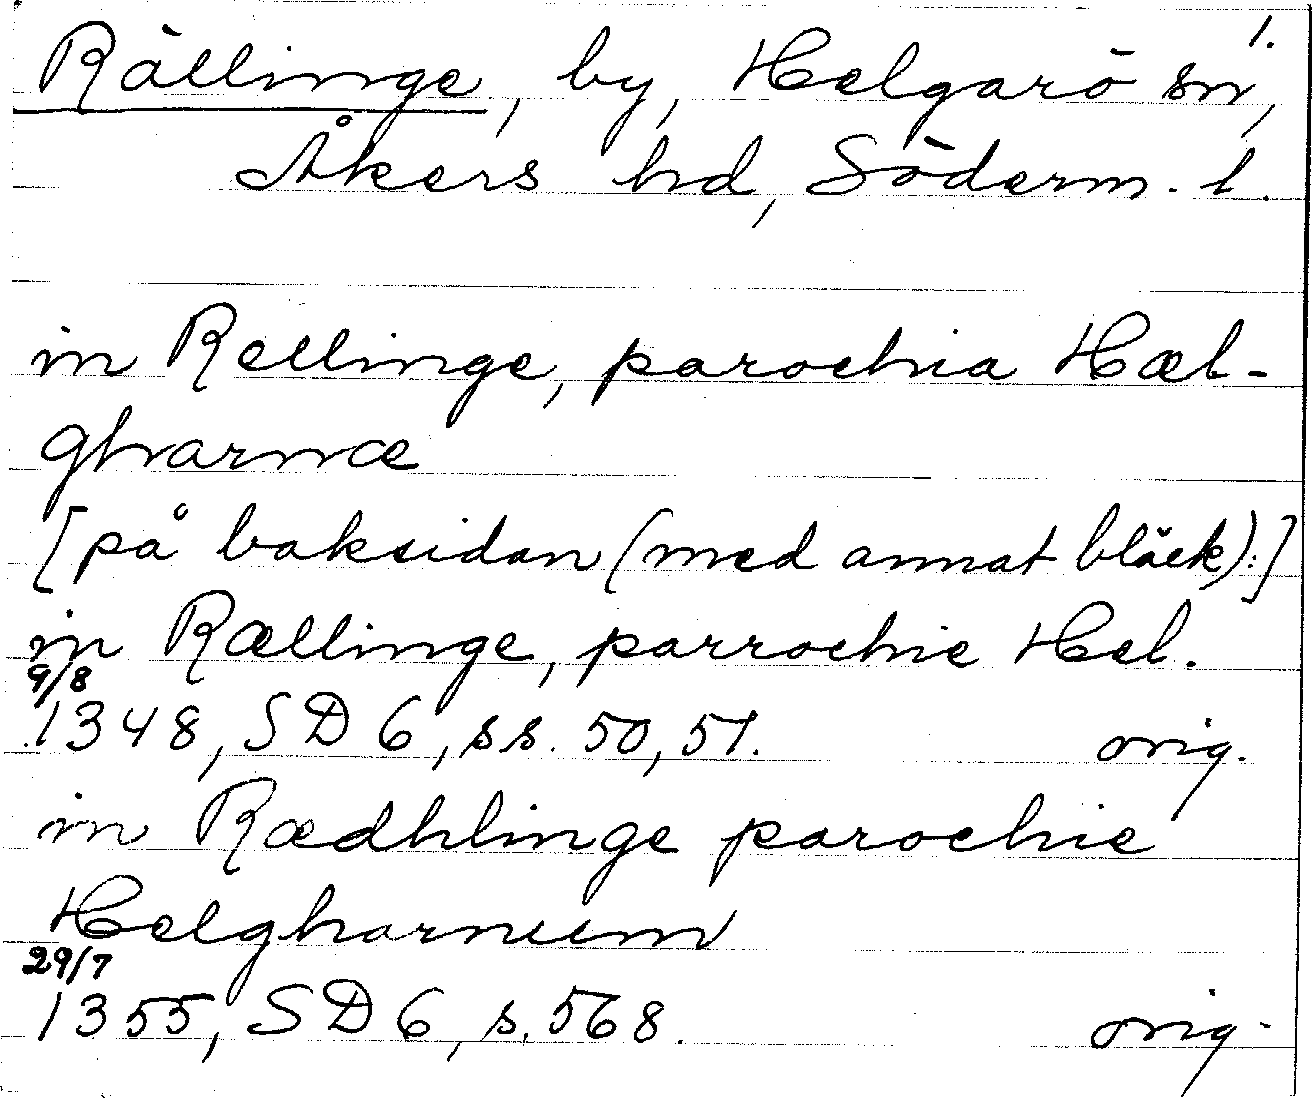 1.
Rällinge, by, Helgarö sn,
Åkers hd, Söderm. l.
in Rellinge, parochia Hæl-
gharnæ
[på baksidan (med annat bläck):]
in Rællinge, parrochie Hel.
9/8
1348, SD 6, ss. 50, 51. orig.
in Rædhlinge parochie
Helgharnum
29/7
1355, SD 6, s. 568. orig.